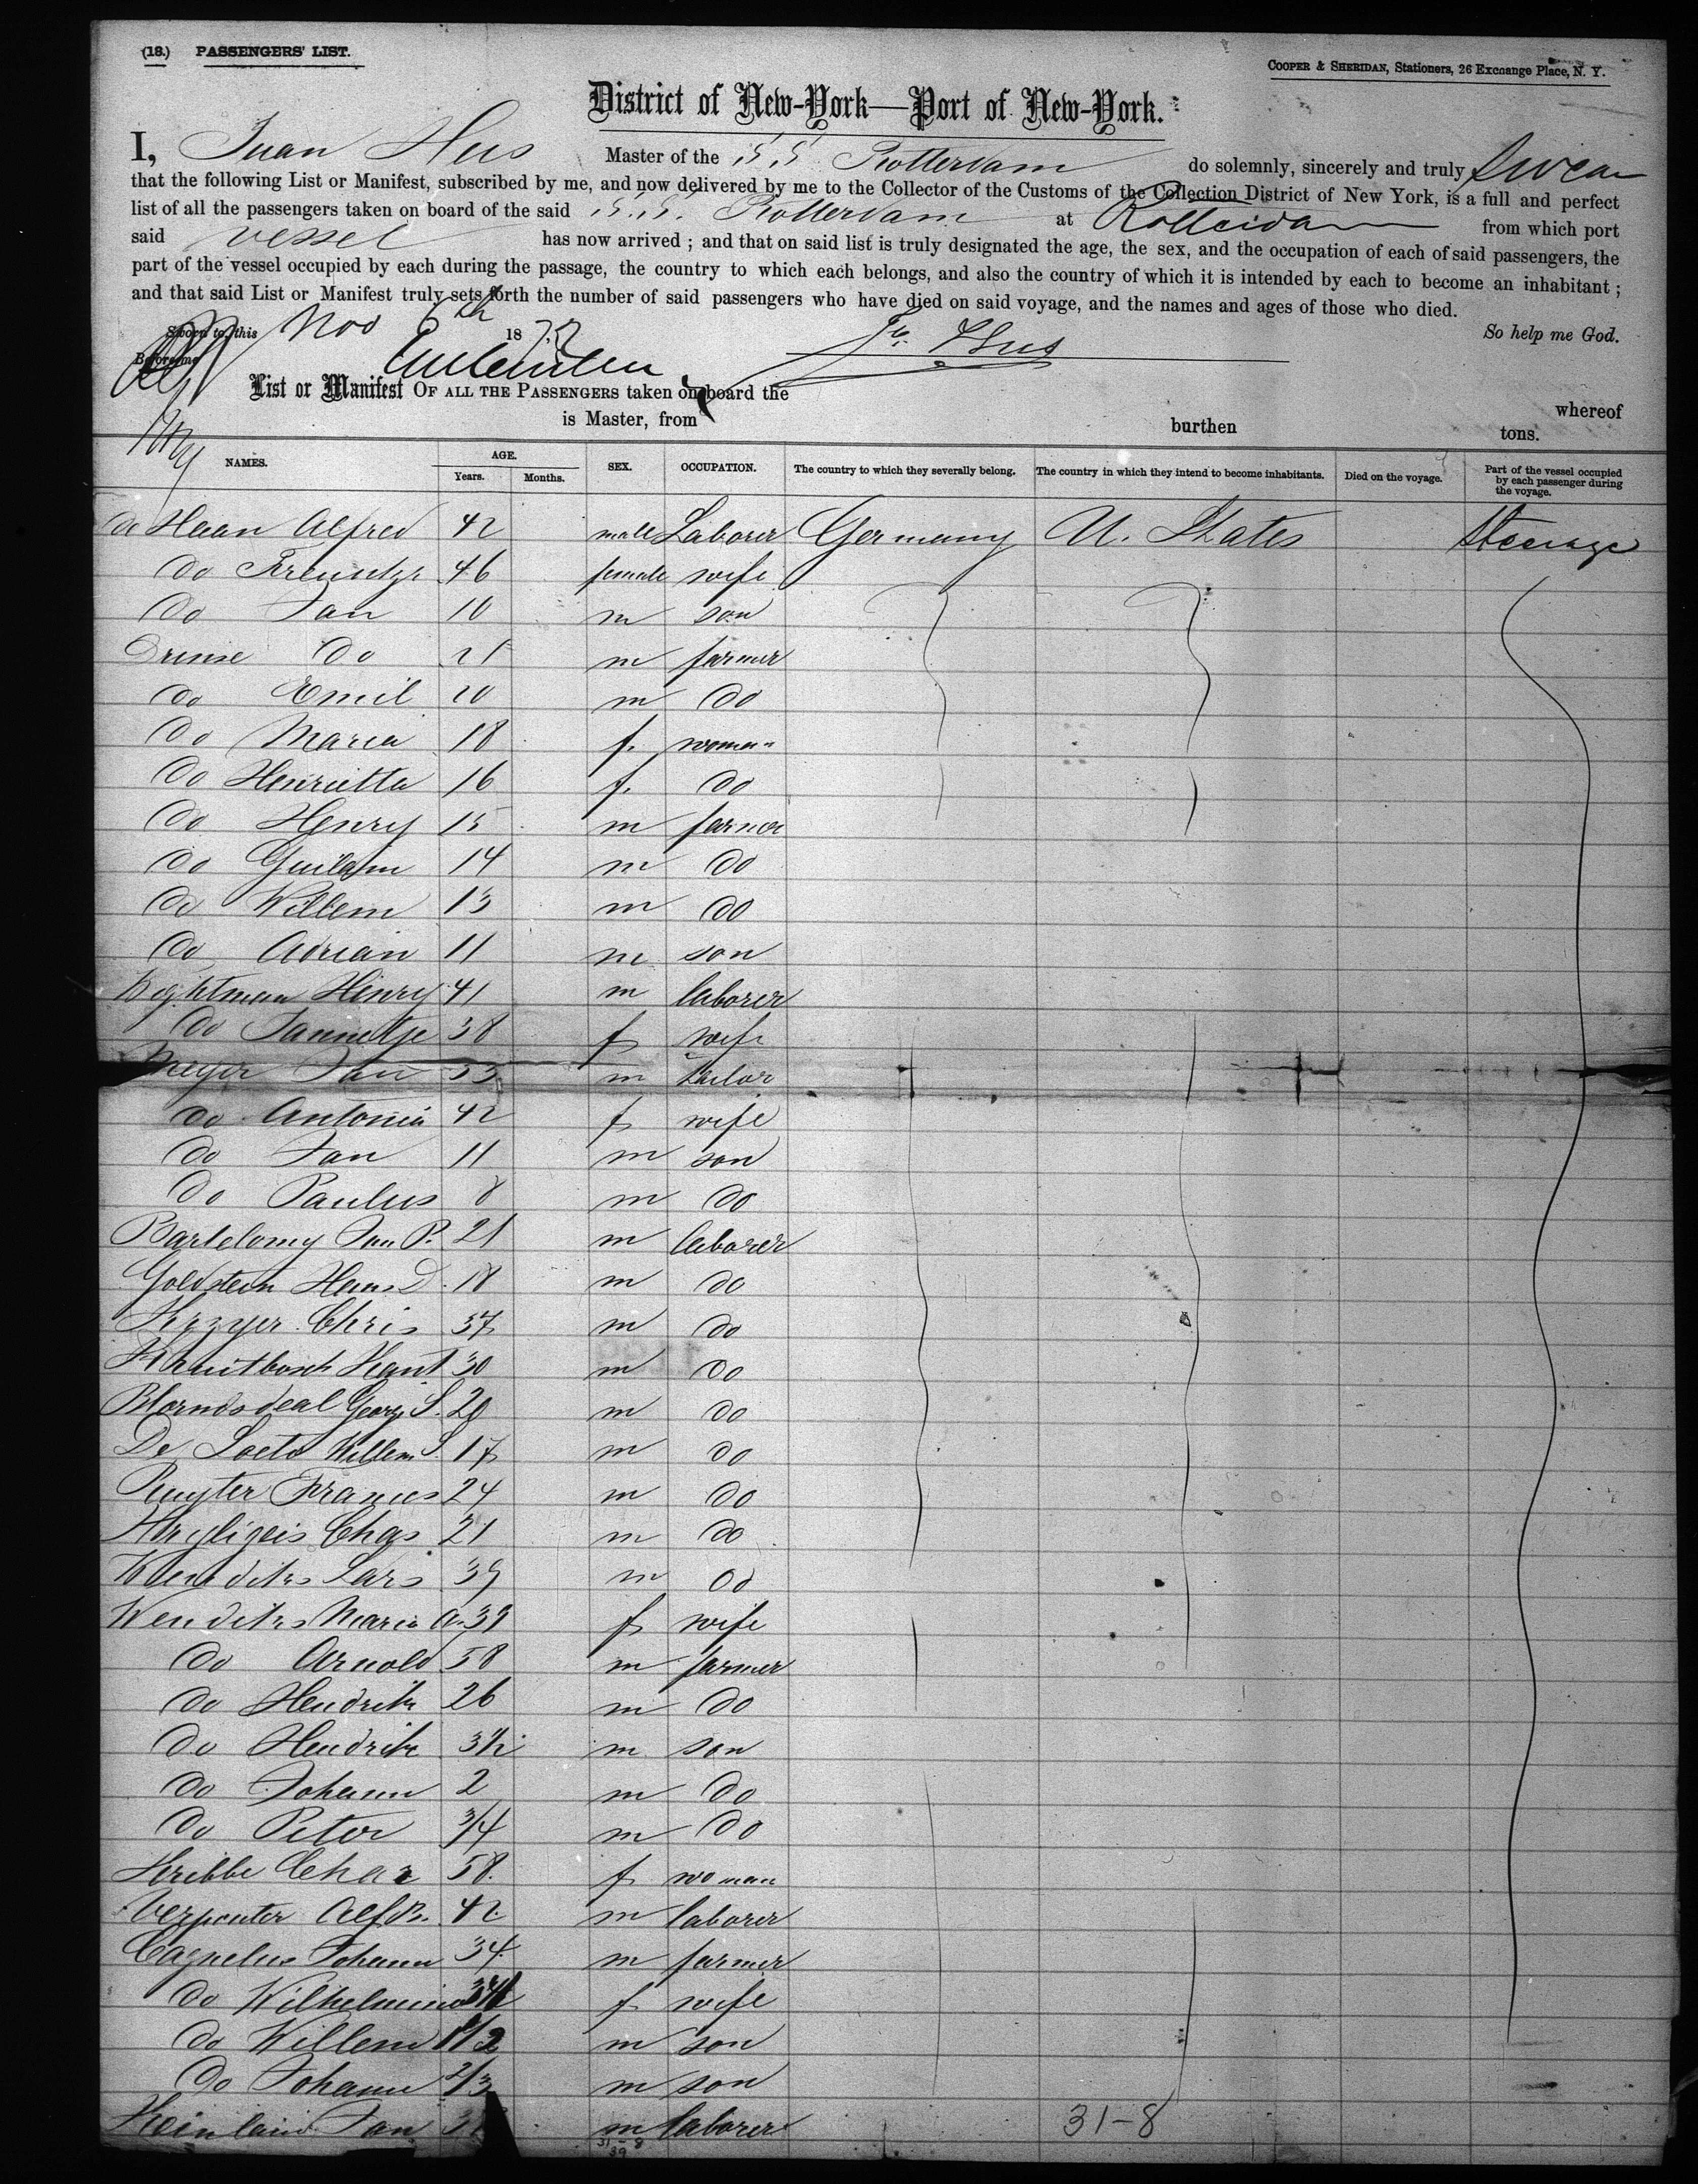 (18.) PASSENGERS' LIST.
COOPER & SHERIDAN, Stationers, 26 Exchange Place, N. Y.
District of New-York—Port of New-York.
I, Juan Hus Master of the S.S. Rotterdam do solemnly, sincerely and truly swear
that the following List or Manifest, subscribed by me, and now delivered by me to the Collector of the Customs of the Collection District of New York, is a full and perfect
list of all the passengers taken on board of the said S.S. Rotterdam at Rotterdam from which port
said vessel has now arrived ; and that on said list is truly designated the age, the sex, and the occupation of each of said passengers, the
part of the vessel occupied by each during the passage, the country to which each belongs, and also the country of which it is intended by each to become an inhabitant ;
and that said List or Manifest truly sets forth the number of said passengers who have died on said voyage, and the names and ages of those who died.
Sworn to, this Nov 6th 18 So help me God.
Before me Hus
List or Manifest OF ALL THE PASSENGERS taken on board the whereof
is Master, from burthen tons.
NAMES. AGE. Years. Months. SEX. OCCUPATION. The country to which they severally belong. The country in which they intend to become inhabitants. Died on the voyage. Part of the vessel occupied by each passenger during the voyage.
de Haan Alfred 42 male Laborer Germany U. States Steerage
do 46 female wife
do Jan 10 m son
do 21 m farmer
do Emil 20 m do
do Maria 18 f. woman
do Henrietta 16 f. do
do Henry 15 m farmer
do 14 m do
do Willem 13 m do
do Adrian 11 m son
Henry 41 m laborer
do Jannetje 38 f wife
Meyer Jan 53 m tailor
do Antonia 42 f wife
do Jan 11 m son
do Paulus 8 m do
Bartelomy Jan P. 21 m laborer
Goldstein Hans D. 18 m do
Chris 37 m do
30 m do
George S. 20 m do
De Willem S. 17 m do
Francis 24 m do
Chas 21 m do
Lars 39 m do
Wenditzs Maria A. 39 f wife
do Arnold 58 m farmer
do Hendrik 26 m do
do Hendrik 3½ m son
do Johann 2 m do
do Peter 3/4 m do
58. f woman
42 m laborer
Johann 34 m farmer
do Wilhelmina f wife
do Willem m son
do Johann m son
Jan m laborer
31-8
31-8
39